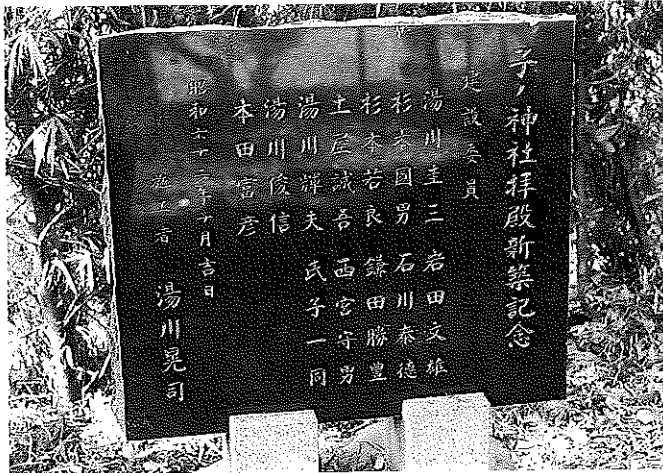 子ノ神社拝殿新築記念
建設委員
湯川圭三 岩田文雄
杉本國男 石川泰徳
杉本若良 鎌田勝豊
土屋誠吾 西宮守男
湯川輝夫 氏子一同
湯川俊信
本田富彦
昭和六十二年十月吉日
施工者 湯川晃司